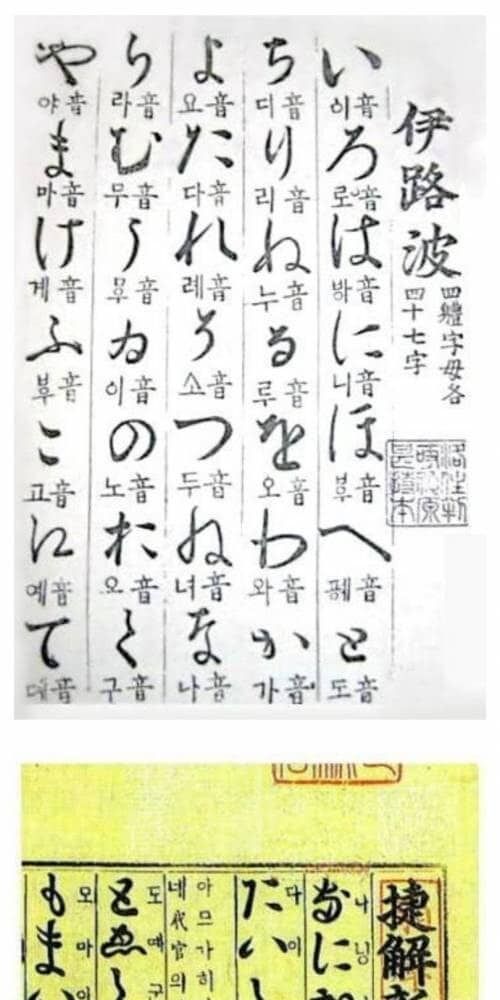 伊路波
四體字母各
四十七字
い 이音 ろ 로音 は 音 に 니音 ほ 音 へ 音 と 도音
ち 디音 り 리音 ぬ 누音 る 루音 を 오音 わ 와音 か 가音
よ 요音 た 다音 れ 례音 そ 소音 つ 두音 ね 녀音 な 나音
ら 라音 む 무音 う 音 ゐ 이音 の 노音 お 오音 く 구音
や 야音 ま 마音 け 계音 ふ 音 こ 고音 え 예音 て 音
捷解
나닝
なに
다이
たい
아므가히
네代官의
도 구
と
오마와
もまい